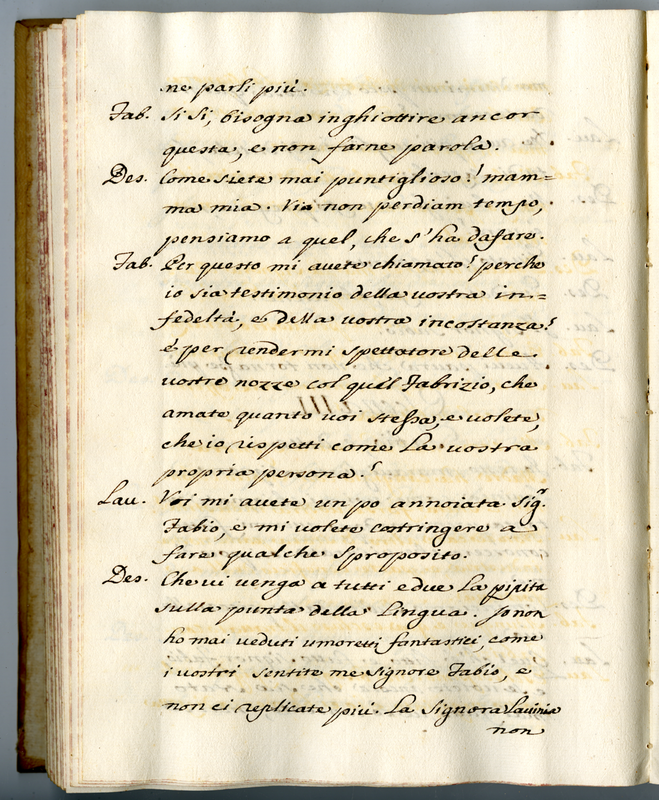 ne parli più.
Fab. Si Si, bisogna inghiottire ancor
questa, e non farne parola.
Des. Come siete mai puntiglioso! mam=
ma mia. Via non perdiam tempo,
pensiamo a quel, che s'ha dafare.
Fab. Per questo mi avete chiamato? perche
io sia testimonio della vostra in=
fedeltà, e della vostra incostanza?
e per rendermi spettatore delle
vostre nozze col quel Fabrizio, che
amate quanto voi stessa, e volete,
che io rispetti come La vostra
propria persona?
Lau. Voi mi avete un po annoiata Sigr.
Fabio, e mi volete costringere a
fare qualche sproposito.
Des. Che vi venga a tutti e due La pipita
sulla punta della Lingua. Io non
ho mai veduti umoretti fantastici, come
i vostri sentite me Signore Fabio, e
non ci replicate più. La Signora Lavinia
non